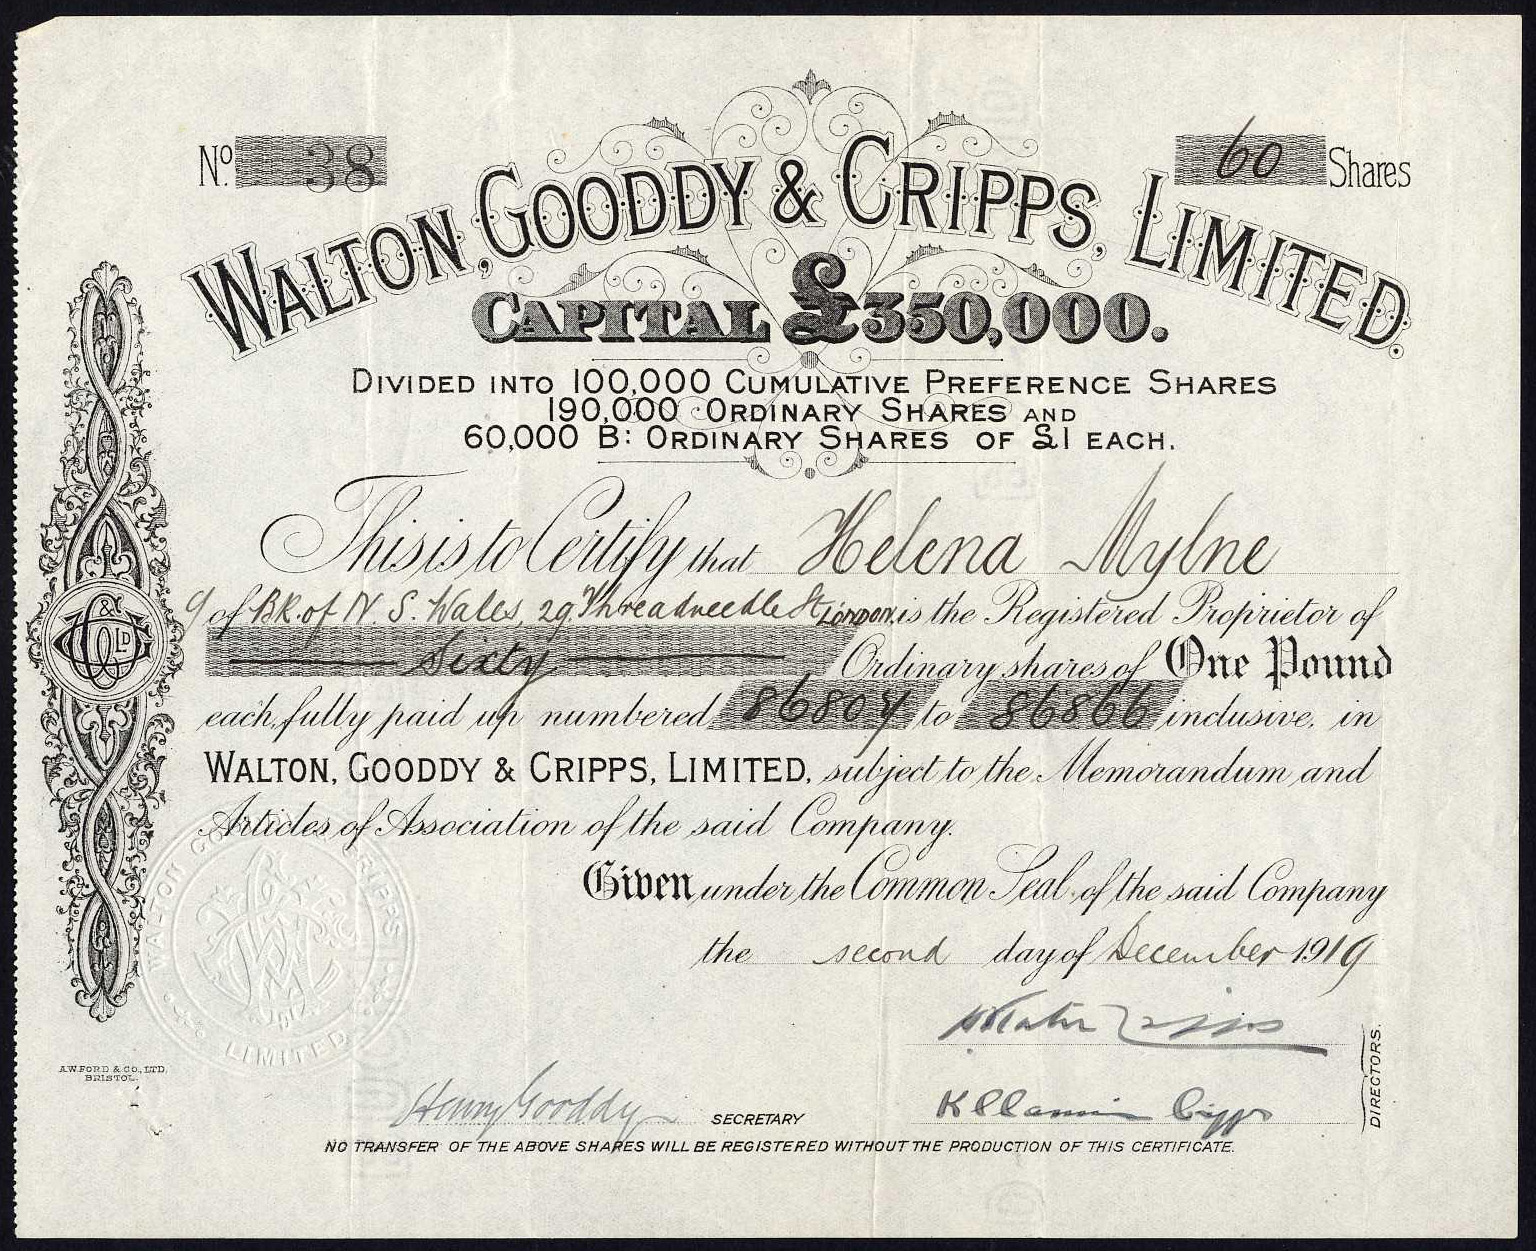 No. 38
60 Shares
WALTON, GOODDY & CRIPPS, LIMITED.
CAPITAL £350,000.
DIVIDED INTO 100,000 CUMULATIVE PREFERENCE SHARES
190,000 ORDINARY SHARES AND
60,000 B: ORDINARY SHARES OF £1 EACH.
This is to Certify that Helena Mylne
of Bk. of N. S. Wales, 29 Threadneedle St London, is the Registered Proprietor of
Sixty Ordinary shares of One Pound
each, fully paid up numbered 86807 to 86866 inclusive, in
WALTON, GOODDY & CRIPPS, LIMITED, subject to the Memorandum and
Articles of Association of the said Company.
Given under the Common Seal of the said Company
the second day of December 1919
DIRECTORS.
Henry Gooddy SECRETARY
NO TRANSFER OF THE ABOVE SHARES WILL BE REGISTERED WITHOUT THE PRODUCTION OF THIS CERTIFICATE.
A.W. FORD & CO., LTD,
BRISTOL.
WALTON GOODDY & CRIPPS LIMITED